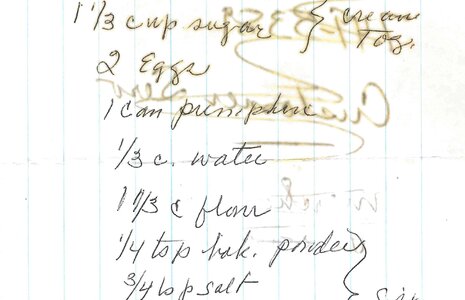 1 1/3 cup sugar } cream
tog.
2 Eggs
1 can pumpkin
1/3 c. water
1 1/3 c flour
1/4 tsp bak. powder
3/4 tsp salt